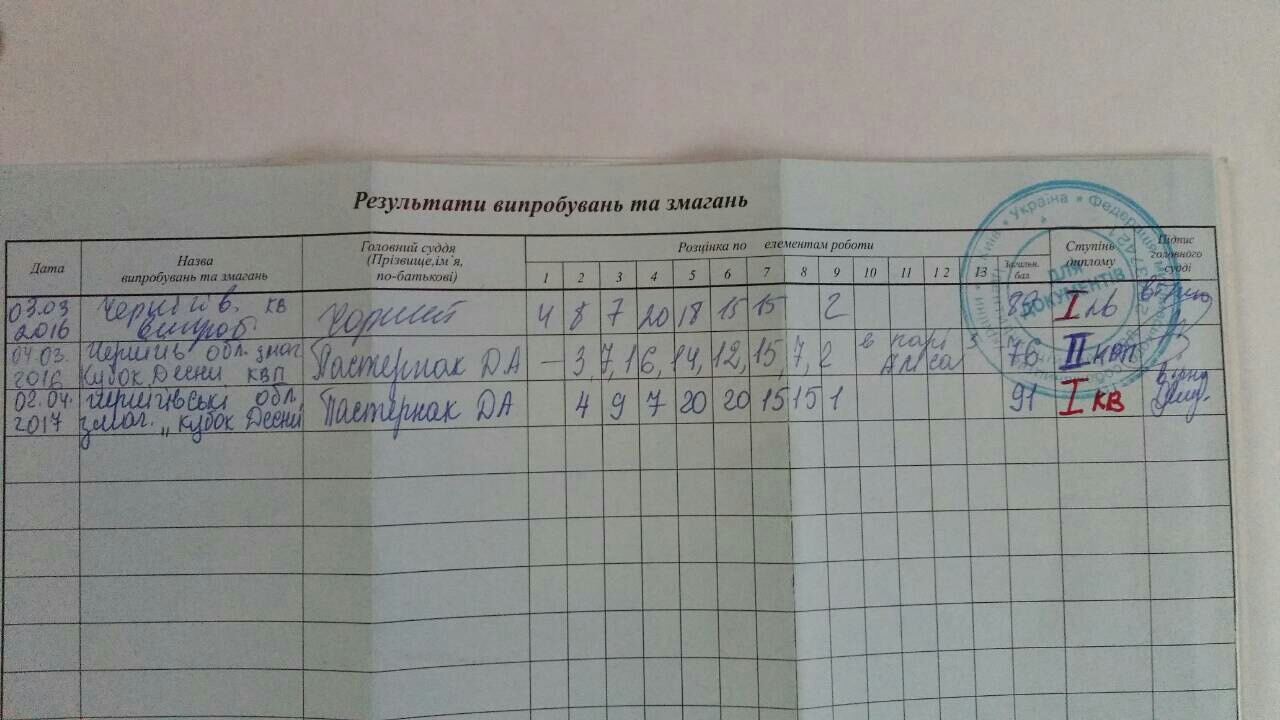 Результати випробувань та змагань
Дата
Назва
випробувань та змагань
Головний суддя
(Прізвище,ім`я,
по-батькові)
Розцінка по елементам роботи
1 2 3 4 5 6 7 8 9 10 11 12 13
Загальн.
бал
Ступінь
диплому
Підпис
головного
судді
Україна * Федерація
ДЛЯ
ДОКУМЕНТІВ
03.03
2016
4 8 7 20 18 15 15 2
I
04.03.
2016
обл. змаг
Кубок Десни КВП
Пастернак ДА
— 3, 7, 16, 14, 12, 15, 7, 2 в парі з
Аліса
76 II
02.04.
2017
Чернігівські обл.
змаг. „Кубок Десни
Пастернак ДА
4 9 7 20 20 15 15 1
91 I КВ